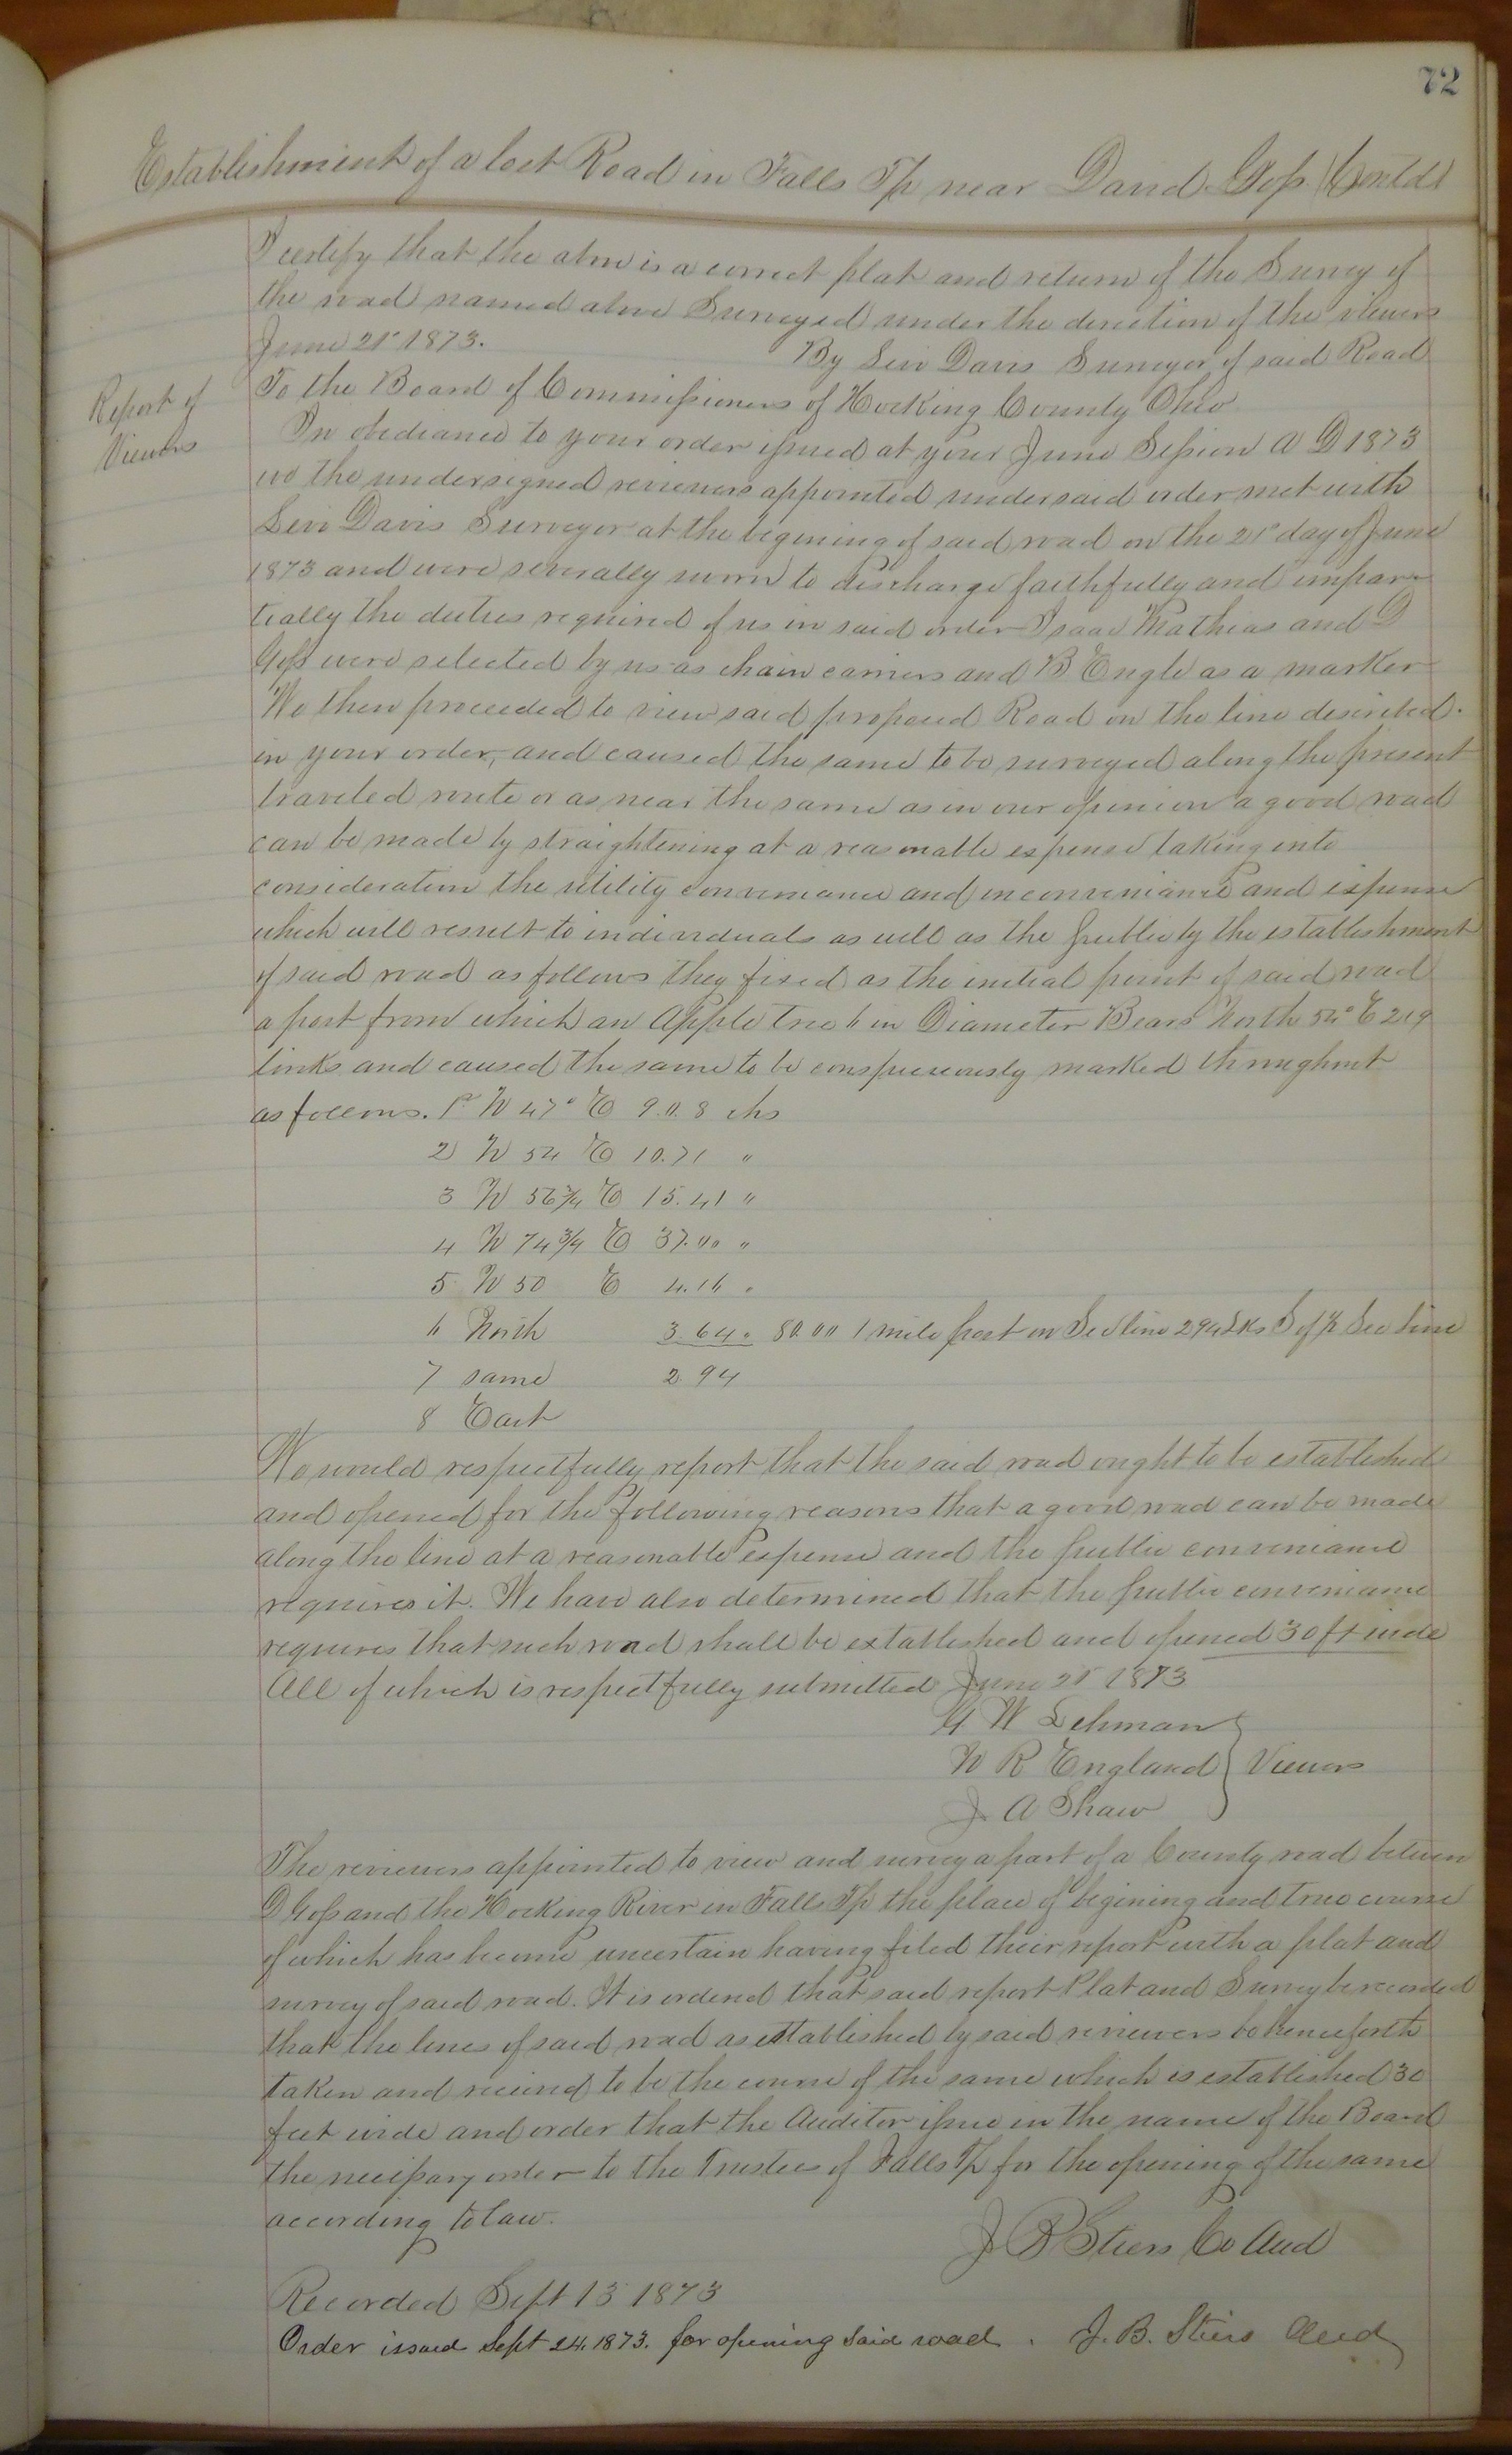 72
Establishment of a lost Road in Falls Tp near David Goss (Contd)
I certify that the above is a correct plat and return of the Survey of
the road named above Surveyed under the direction of the viewers
June 21st 1873. By Levi Davis Surveyor of said Road
Report of
Viewers
To the Board of Commissioners of Hocking County Ohio
In obediance to your order issued at your June Session A D 1873
we the undersigned reviewers appointed under said order met with
Levi Davis Surveyor at the begining of said road on the 21st day of June
1873 and were severally sworn to discharge faithfully and impar-
tially the duties required of us in said order Isaac Mathias and D
Goss were selected by us as chain carriers and B Engle as a marker
We then proceeded to view said proposed Road on the line described
in your order, and caused the same to be surveyed along the present
traveled route or as near the same as in our openion a good road
can be made by straightening at a reasonable expense taking into
consideration the utility conveniance and inconveniance and expense
which will result to individuals as well as the public by the establishment
of said road as follows they fixed as the initial point of said road
a post from which an Apple tree 6 in Diameter Bears North 54° E 219
links and caused the same to be conspicuously marked throughout
as follows. 1st N 47° E 9.08 chs
2 N 54 E 10.71 "
3 N 56 3/4 E 15.41 "
4 N 74 3/4 E 37.00 "
5 N 50 E 4.16 "
6 North 3.64 " 80.00 1 mile post on Sec line 294 Lks S of 1/2 Sec line
7 same 2.94
8 East
We would respectfully report that the said road ought to be established
and opened for the following reasons that a good road can be made
along the line at a reasonable expense and the public conveniance
requires it. We have also determined that the public conveniance
requires that such road shall be established and opened 30 ft wide
All of which is respectfully submitted June 21st 1873
G W Lehman
N R England } Viewers
J A Shaw
The reviewers appointed to view and survey a part of a County road between
D Goss and the Hocking River in Falls Tp the place of begining and true course
of which has become uncertain having filed their report with a plat and
survey of said road. It is ordered that said report Plat and Survey be recorded
that the lines of said road as established by said reviewers be henceforth
taken and received to be the course of the same which is established 30
feet wide and order that the Auditor issue in the name of the Board
the necessary order to the Trustees of Falls Tp for the opening of the same
according to law.
J B Stiers Co Aud
Recorded Sept 13 1873
Order issued Sept 24. 1873. for opening said road. J. B. Stiers Aud